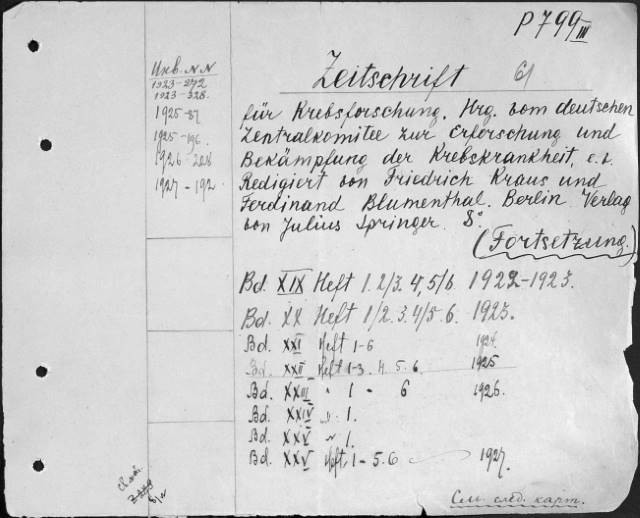 P 799 III
Инв. NN
1923-272
1923-328.
1925-87
1925-196
1926-228
1927-192
Zeitschrift
für Krebsforschung. Hrg. vom deutschen
Zentralkomitee zur Erforschung und
Bekämpfung der Krebskrankheit, e.v.
Redigiert von Friedrich Kraus und
Ferdinand Blumenthal. Berlin. Verlag
von Julius Springer. 8°
(Fortsetzung.)
Bd. XIX Heft 1. 2/3. 4, 5/6. 1922-1923.
Bd. XX Heft 1/2. 3. 4/5. 6. 1923.
Bd. XXI Heft 1-6 1924.
Bd. XXII Heft 1-3. 4. 5. 6. 1925
Bd. XXIII " 1 - 6 1926.
Bd. XXIV " 1.
Bd. XXV " 1.
Bd. XXV Heft, 1-5. 6 1927.
См. след. карт.